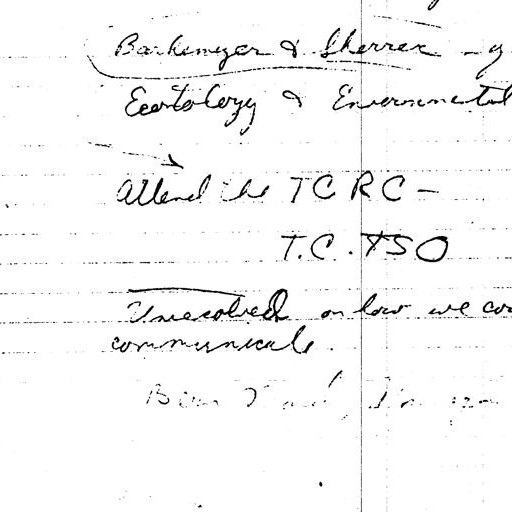 Barkemeyer & Sherrer - g
Ecotology & Enveronmental
Attend the TCRC -
T.C. TSO
Unresolved on how we co
communicate.